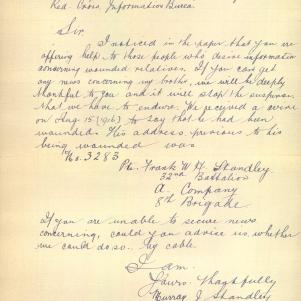 Red Cross Information Bureau
Sir.
I noticed in the paper that you are
offering help to those people who desire information
concerning wounded relatives. If you can get
any news concerning my brother, we will be deeply
thankful to you and it will stop the suspense
that we have to endure. We received a wire
on Aug 15 (1916) to say that he had been
wounded. His address previous to his
being wounded was
No. 3283
Pte. Frank W. H. Standley
32nd Battalion
A. Company
8th Brigade
If you are unable to secure news
concerning, could you advise us whether
we could do so by cable
I am.
Yours Thankfully
Murray J Standley